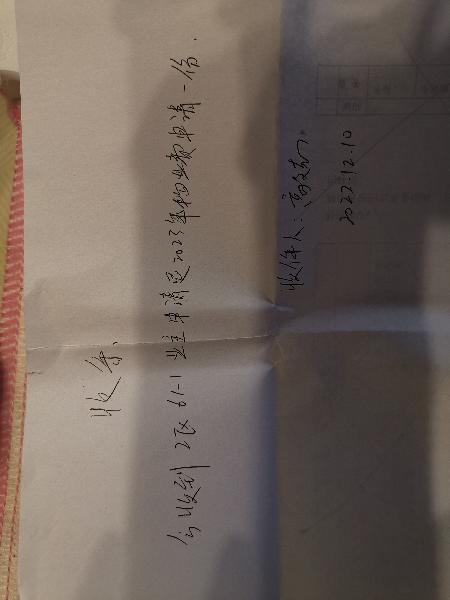 收条、
今收到2区61-1业主申请免2023年物业费申请一份.
收件人:高文
2022.12.10